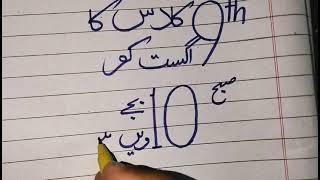 9th کلاس کا
اگست کو
صبح 10 بجے
ویں